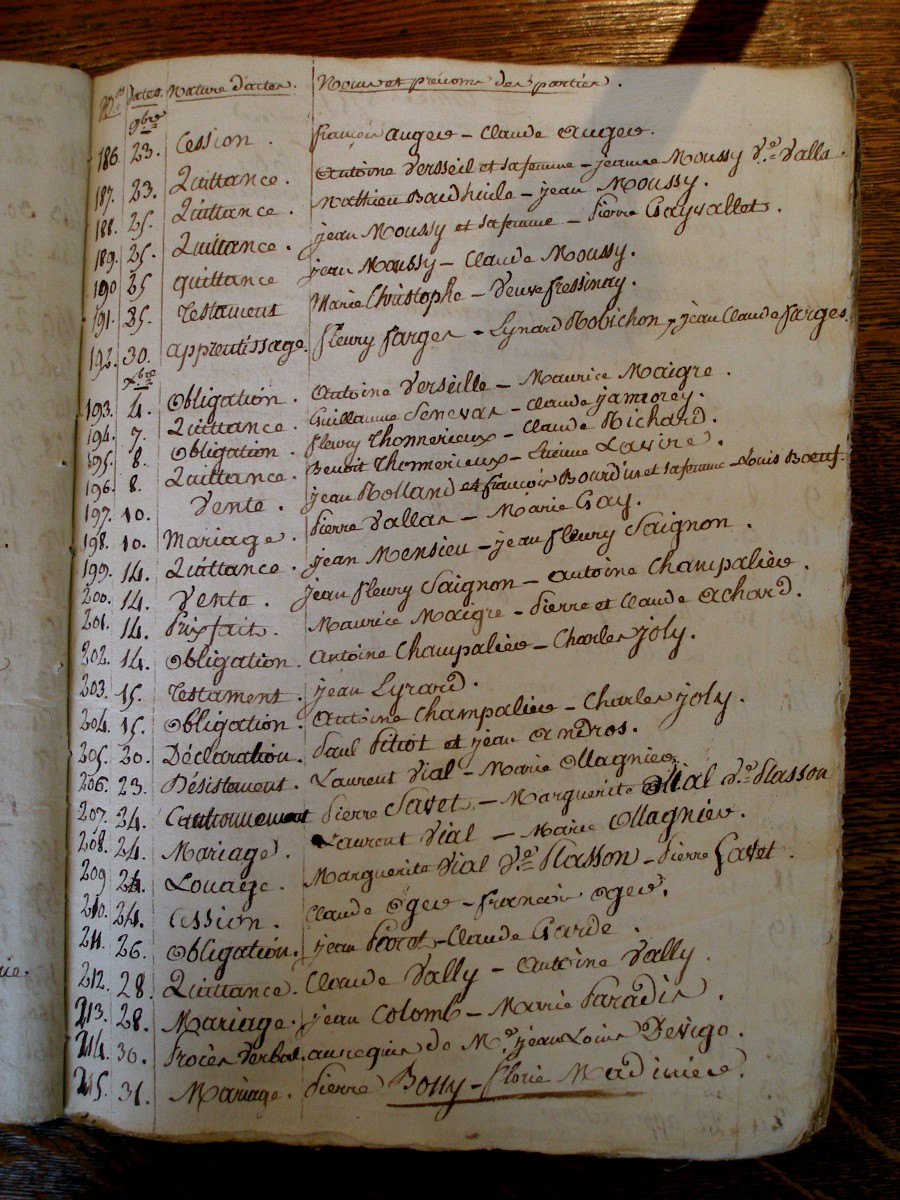 Nos Dates. Nature d'actes. Noms et prénoms des parties.
9bre
186. 23. Cession. françois augeo - Claude augeo.
187. 23. Quittance. Antoine Versseil et sa femme - jeanne Moussy Ve Valla.
188. 25. Quittance. Mathieu - jean Moussy.
189. 25. Quittance. jean Moussy et sa femme - Pierre Gaysallet.
190 25 quittance jean Moussy - Claude Moussy.
191. 25. Testament Marie Christophe - Veuve fressinay.
192. 30. apprentissage. fleury farges - Lynard Robichon, jean Claude farges.
xbre
193. 4. Obligation. Antoine Verseille - Maurice Maigre.
194. 7. Quittance. Guillaume Senevas - Claude jamorey.
195. 8. Obligation. fleury Thonnerieux - Claude Richard.
196. 8. Quittance. Benoit Thonnerieux - Etienne Lavire.
197. 10. Vente. jean Rolland et françois Bourdin et sa femme - Louis Boeuf.
198. 10. Mariage. Pierre Vallas - Marie Gay.
199. 14. Quittance. jean Mensieu - jean fleury Saignon.
200. 14. Vente. jean fleury Saignon - Antoine Champalieo.
201. 14. Prix fait. Maurice Maigre - Pierre et Claude Achard.
202. 14. Obligation. Antoine Champalieo - Charles joly.
203. 15. Testament. jean Lyrard.
204. 15. Obligation. Antoine Champalieo - Charles joly.
205. 20. Déclaration. Paul Pitiot et jean Andros.
206. 23. Désistement. Laurent Vial - Marie Ollagnieo
207. 24. Cautionnement Pierre Savet - Marguerite Vial Ve Plasson
208. 24. Mariage. Laurent Vial - Marie Ollagnieo.
209 24. Louage. Marguerite Vial Ve Plasson - Pierre Savet.
210 24. Cession. Claude Ogeo - francois Ogeo.
211 26. Obligation. jean - Claude Garde.
212. 28. Quittance. Claude Vally - Antoine Vally.
213. 28. Mariage. jean Colomb - Marie Paradis.
214. 30. Procès Verbal. au requis de Mre jean Louis Devigo.
215. 31. Mariage. Pierre Bossy - florie Madiniere.